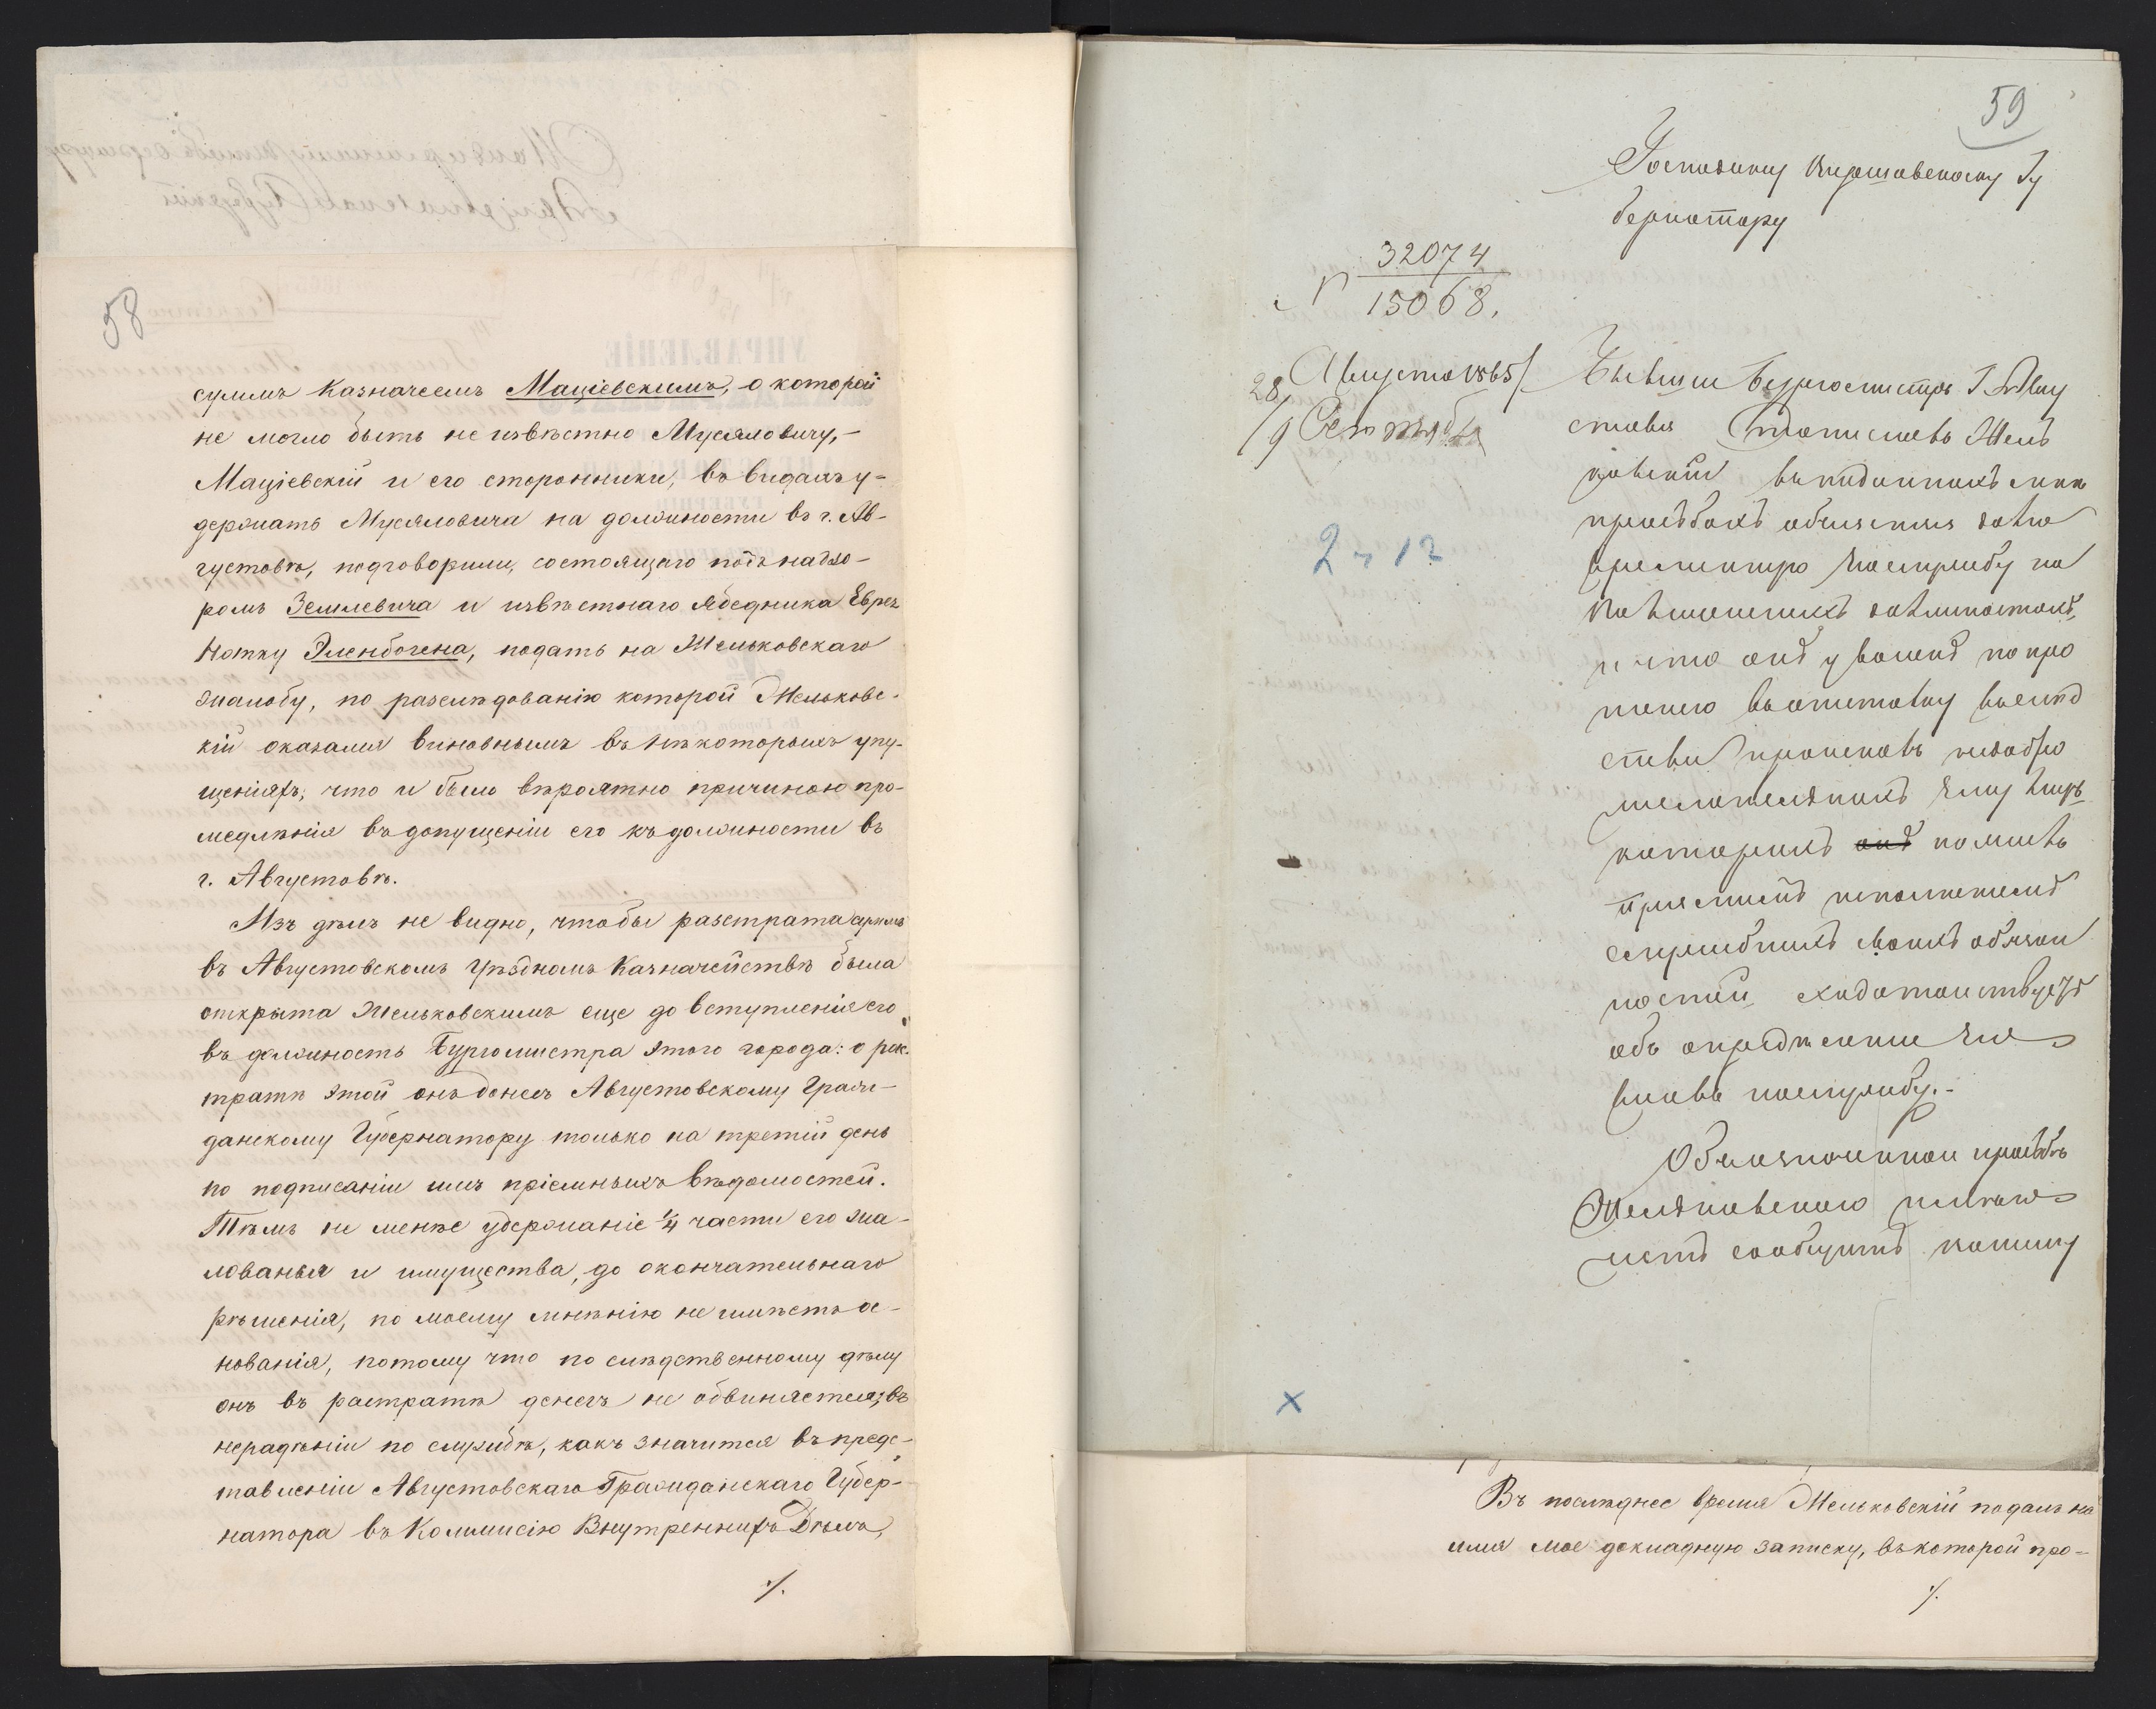 58
суммъ Казначеемъ Маціевскимъ, о которой
не могло быть не извѣстно Мусяловичу,-
Маціевскій и его сторонники, въ видахъ у-
держать Мусяловича на должности въ г. Ав-
густовѣ, подговорили, состоящаго подъ надзо-
ромъ Землевича и извѣстнаго Ябедника Еврея
Нотку Эленбогена, подать на Жельковскаго
жалобу, по разслѣдованію которой Жельковс-
кій оказался виновнымъ въ нѣкоторыхъ упу-
щеніяхъ, что и было вѣроятно причиною про-
медлѣнія въ допущеніи его къ должности въ
г. Августовѣ.
Изъ дѣлъ не видно, чтобы разстрата суммъ
въ Августовскомъ Уѣздномъ Казначействѣ была
открыта Жельковскимъ еще до вступленія его
въ должность Бургомистра этого города: о рас-
тратѣ этой онъ донесъ Августовскому Граж-
данскому Губернатору только на третій день
по подписаніи имъ пріемныхъ вѣдомостей.
Тѣмъ не менѣе удержаніе 1/4 части его жа-
лованья и имущества, до окончательнаго
рѣшенія, по моему мнѣнію не имѣетъ ос-
нованія, потому что по слѣдственному дѣлу
онъ въ растратѣ денегъ не обвиняется; въ
нерадѣніи по службѣ, какъ значится въ предс-
тавленіи Августовскаго Гражданскаго Губер-
натора въ Коммисію Внутреннихъ Дѣлъ,
./.
59
Господину Варшавскому Гу
бернатору
N 32074
15068.
28 Августа 1865
/9 Сентяб
2 ч 12
Бывшій Бургомистръ Г. Авгу
стова Станиславъ Жель
ковскій въ поданныхъ мнѣ
просьбахъ объясняя
службу на
и что онъ уволенъ по про
шенію въ отставку вслѣд
ствіи происковъ недобро
желательныхъ ему лицъ
которыхъ онъ
исполненіемъ
служебныхъ своихъ обязан
ностей, ходатайствуетъ
объ опредѣленіи его
вновь на службу.-
Объ изложенной просьбѣ
Жельковскаго имѣю
честь сообщить Вашему
х
Въ послѣднее время Жельковскій подалъ на
имя мое докладную записку, въ которой про-
./.